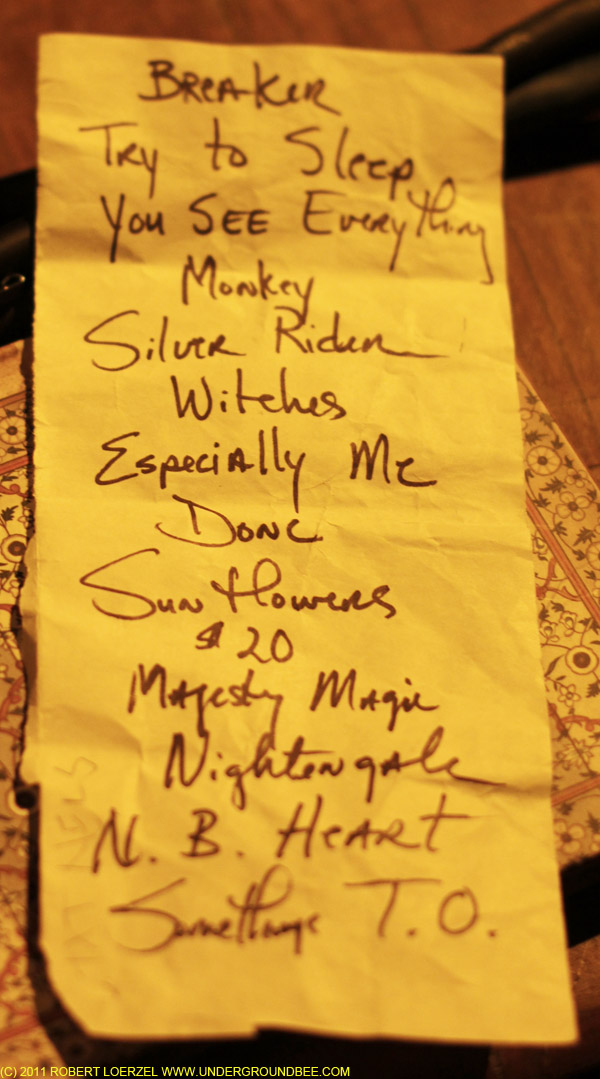 Breaker
Try to Sleep
You See Everything
Monkey
Silver Rider
Witches
Especially Me
Done
Sunflowers
$20
Majesty Magic
Nightengale
N. B. Heart
Something T.O.
(C) 2011 ROBERT LOERZEL WWW.UNDERGROUNDBEE.COM